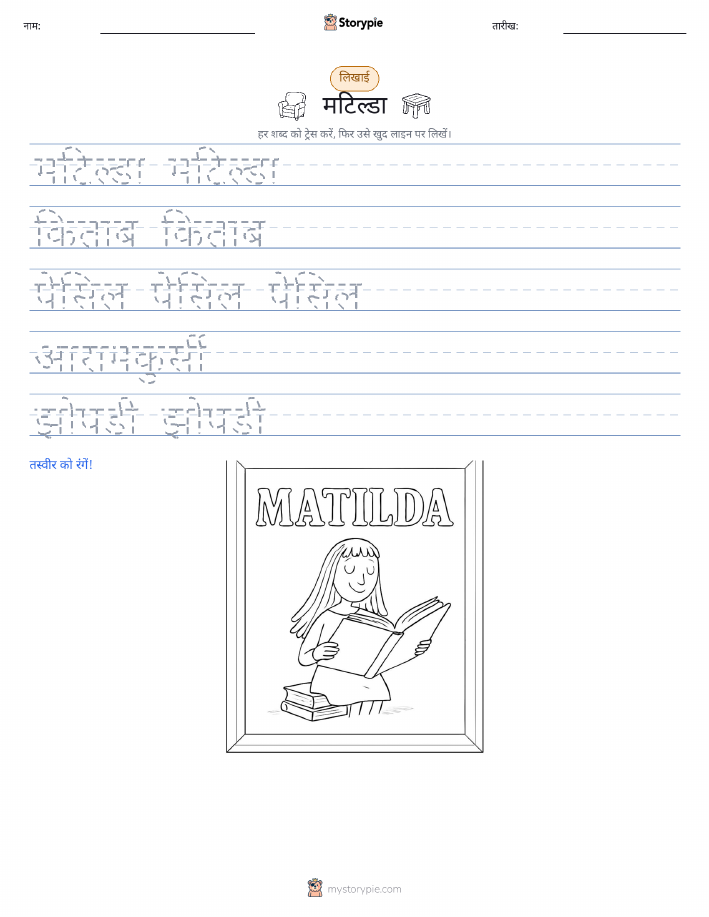 नाम:
Storypie
तारीख:
लिखाई
मटिल्डा
हर शब्द को ट्रेस करें, फिर उसे खुद लाइन पर लिखें।
मटिल्डा मटिल्डा
किताब किताब
पेंसिल पेंसिल पेंसिल
आरामकुर्सी
झोपड़ी झोपड़ी
तस्वीर को रंगें!
MATILDA
mystorypie.com